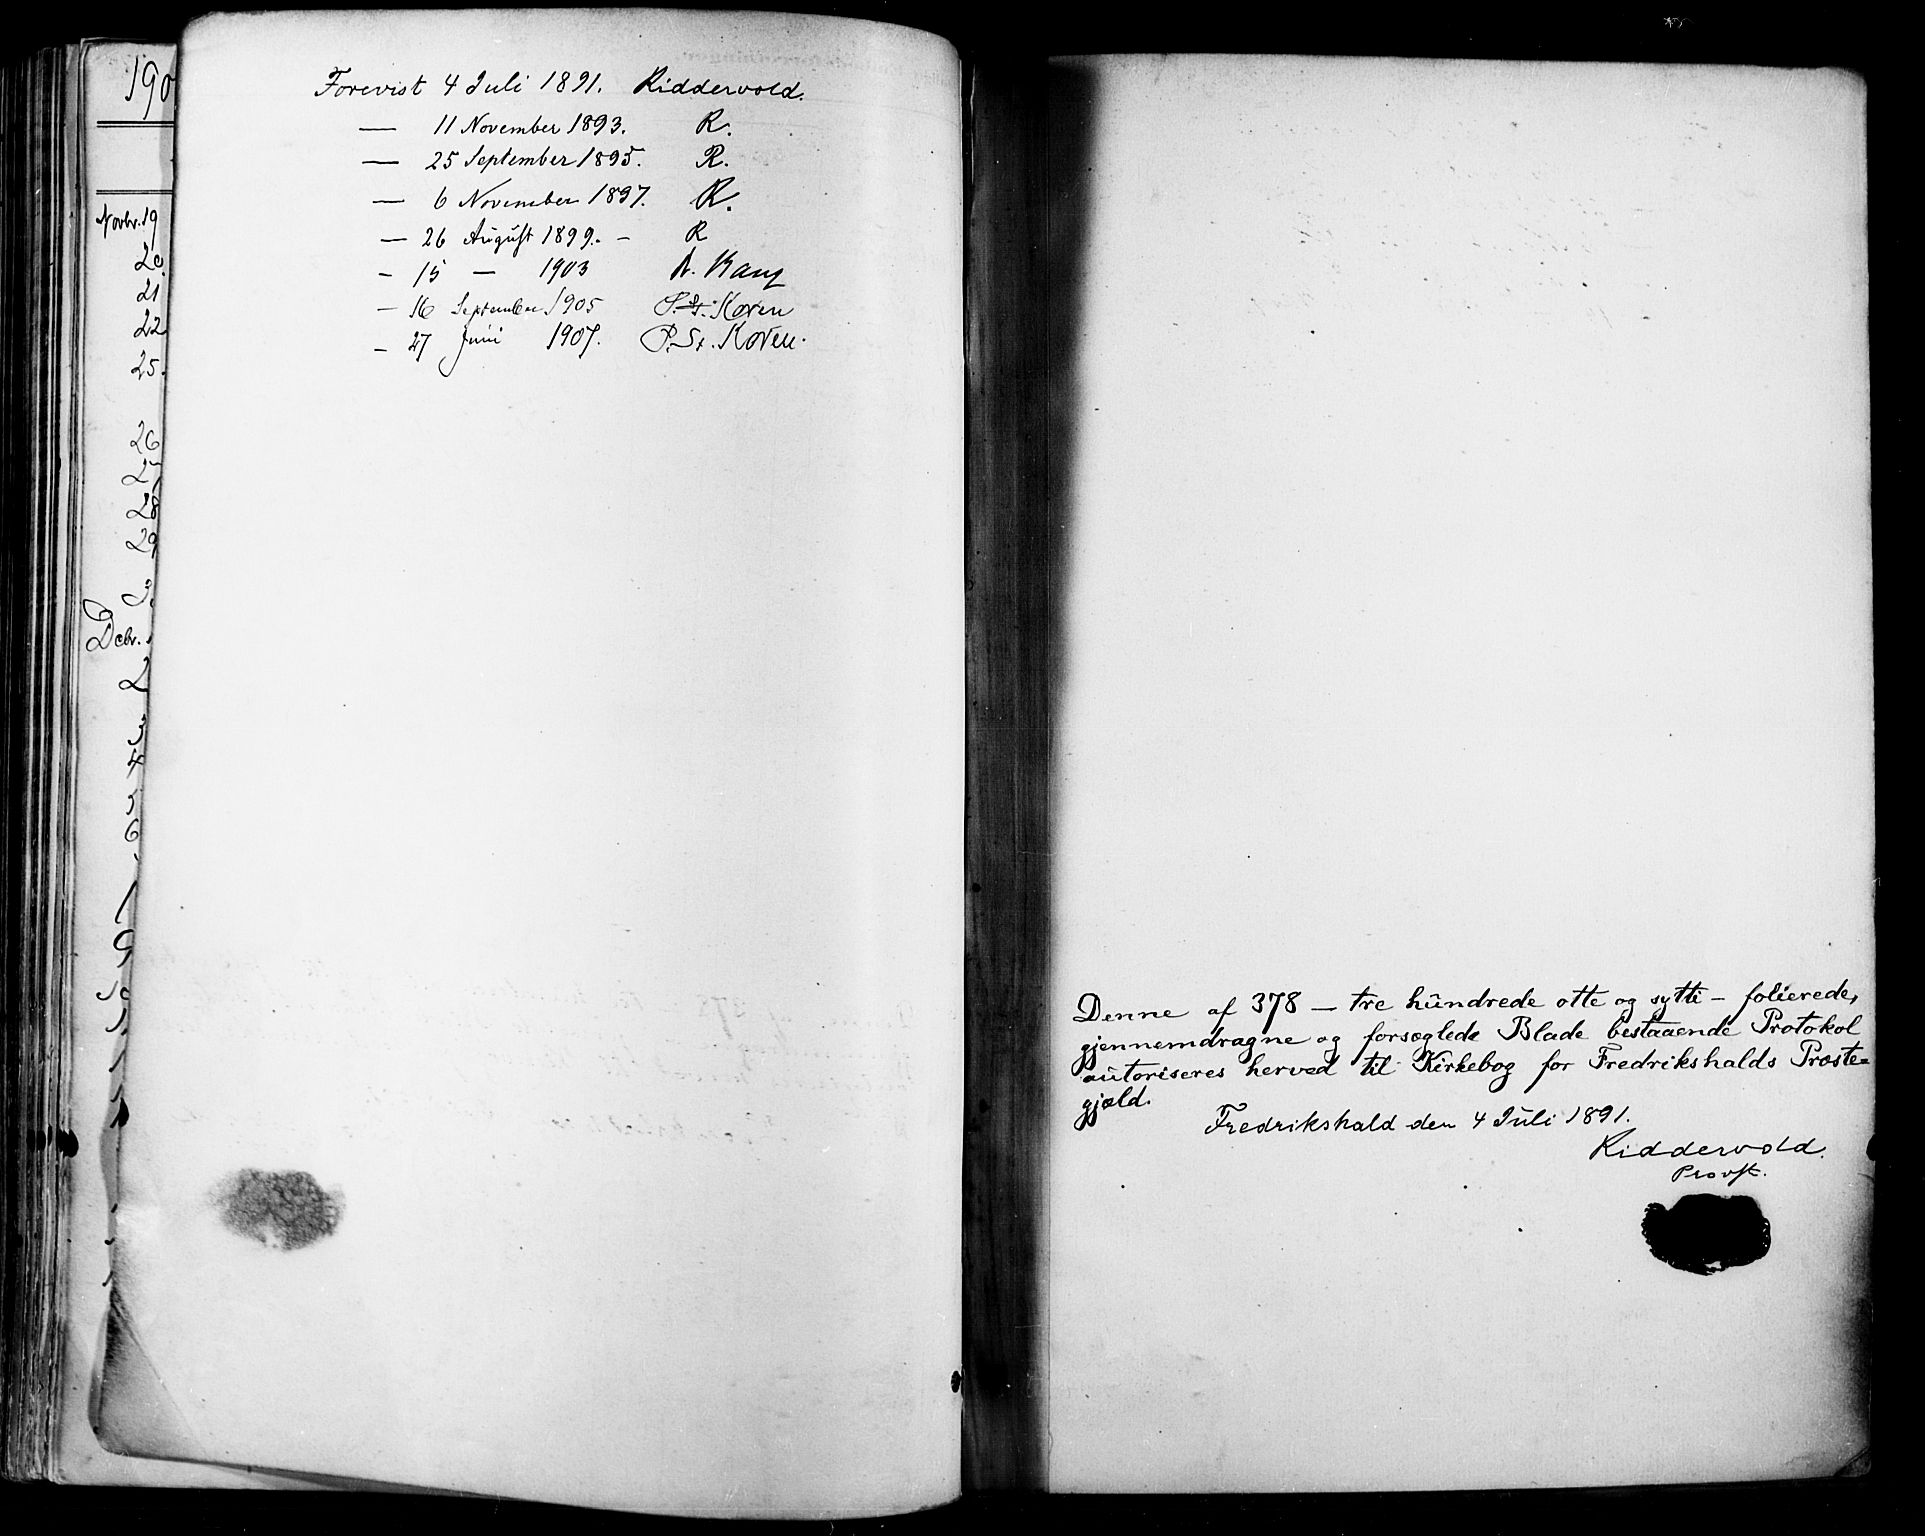 190
Novbr. 19
20
21
22
25.
26
27
28
29
Debr.
Forevist 4 Juli 1891. Riddervold.
— 11 November 1893. R.
— 25 September 1895. R.
— 6 November 1897. R.
— 26 August 1899. – R
– 15 — 1903
– 16 September 1905 P. St. Koren
– 27 Juni 1907. P. St. Koren.
Denne af 378 — tre hundrede otte og sytti – folierede,
gjennemdragne og forseglede Blade bestaaende Protokol
autoriseres herved til Kirkebog for Fredrikshalds Præste=
gjæld.
Fredrikshald den 4 Juli 1891.
Riddervold.
Provst.